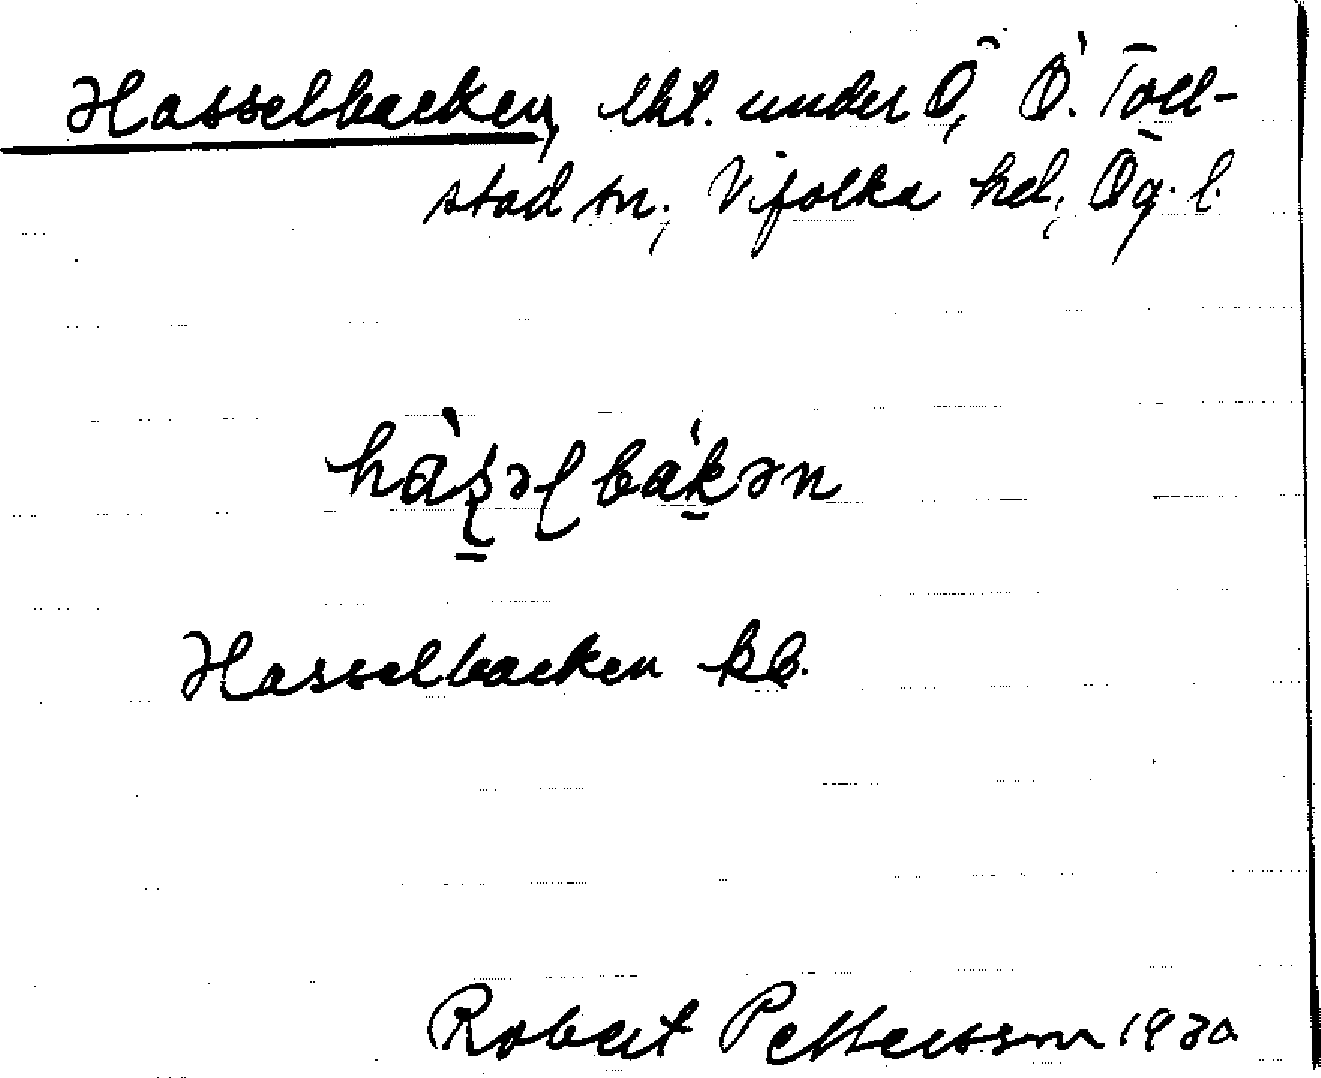 Hasselbacken, lht. under Ö, Ö. Toll-
stad sn, Vifolka hd, Ög. l.
hàs̱əl bák̠ən
Hasselbacken kb.
Robert Pettersson 1930